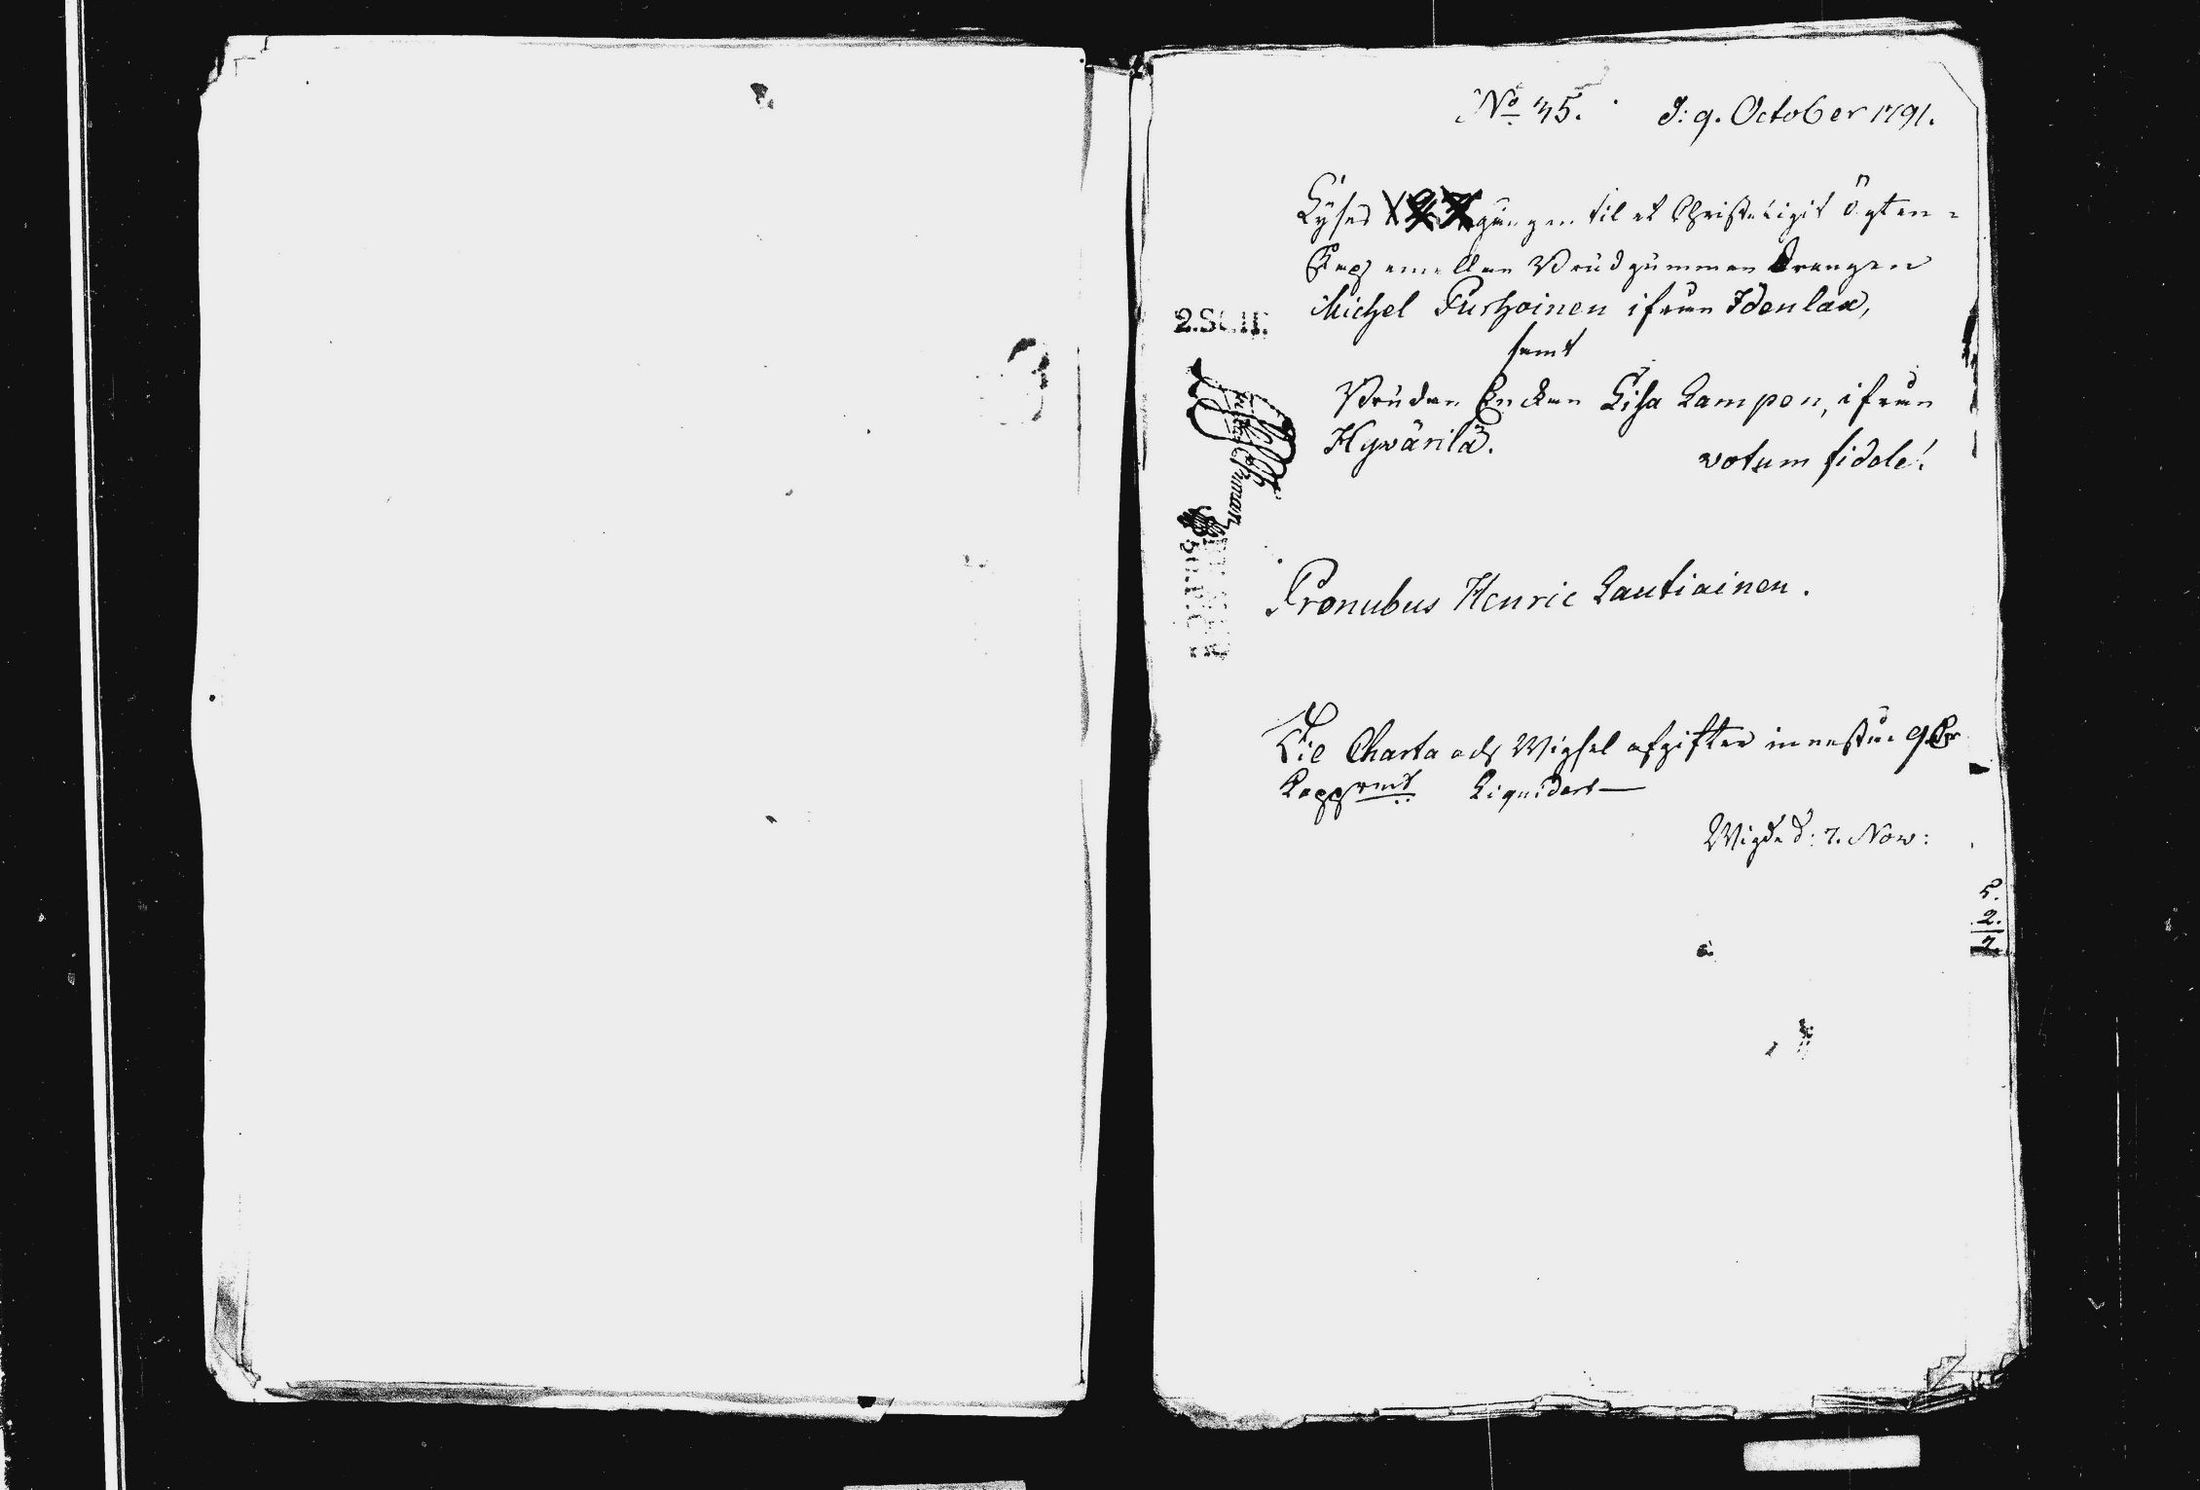 No 45. D: 9. October 1791.
Lyses gången til et Christeligit Ägten-
skap emellan Brudgumman Drengen
Michel Purhoinen ifrån Idenlax,
samt
Bruden Enckan Lisa Lampen, ifrån
Hywärilä.
votum fidele!
2.SCHL.
Pronubus Henric Lautiainen.
Til Charta och Wigsel afgifter innestår 9
Liquidert
Wigde d: 7. Now:
5.
2.
7